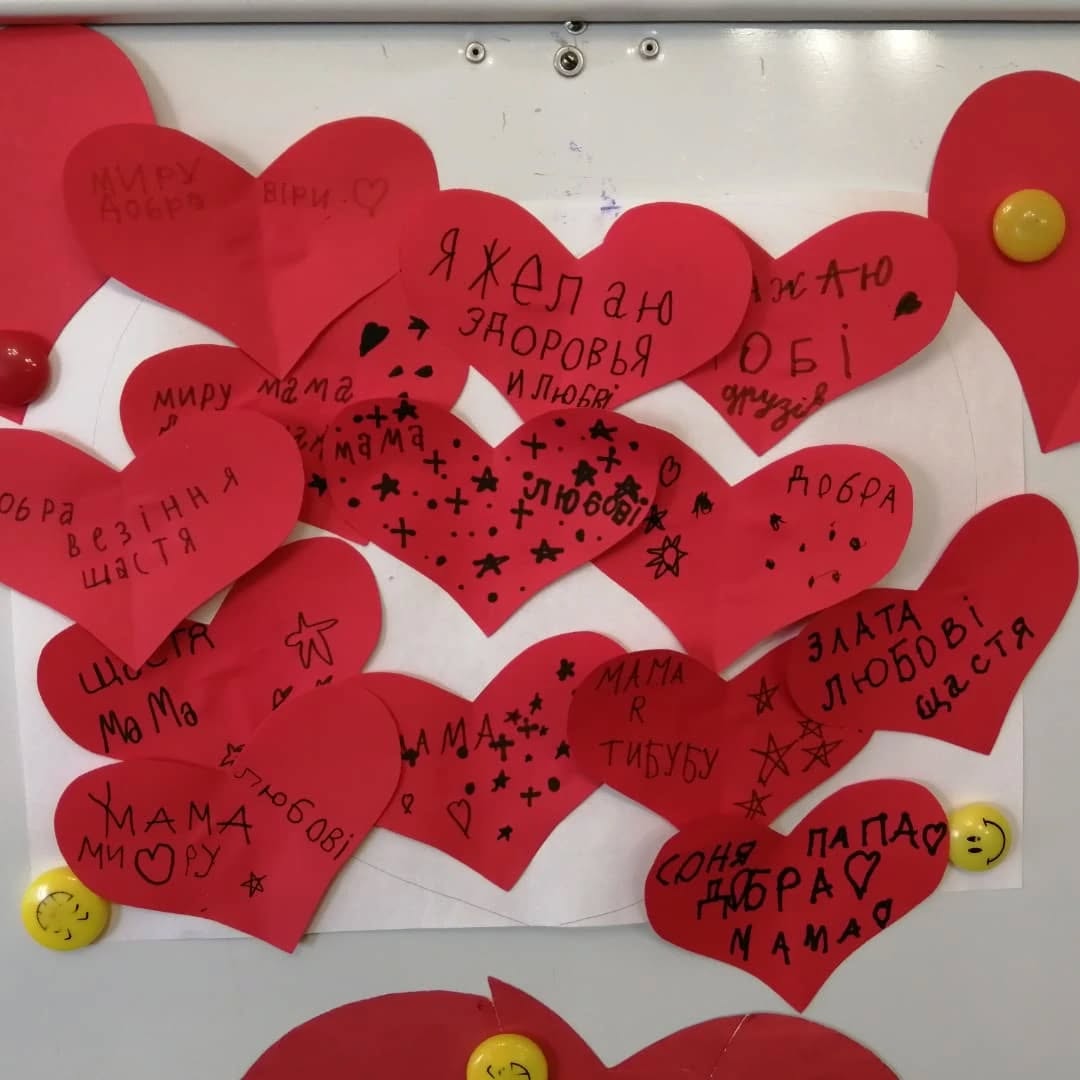 МИРУ
ДОБРА
ВІРИ
Я ЖЕЛАЮ
ЗДОРОВЬЯ
И ЛЮБВІ
АЖАЮ
ОБІ
друзів
МИРУ мама
мама
ЛЮБОВІ
ДОБРА
ОБРА
везіння
щастя
ЗЛАТА
ЛЮБОВІ
щастя
щастя
мама
АМА
МАМА
Я
ТИБУБУ
и любові
МАМА
МИРУ
СОНЯ ПАПА
ДОБРА
МАМА